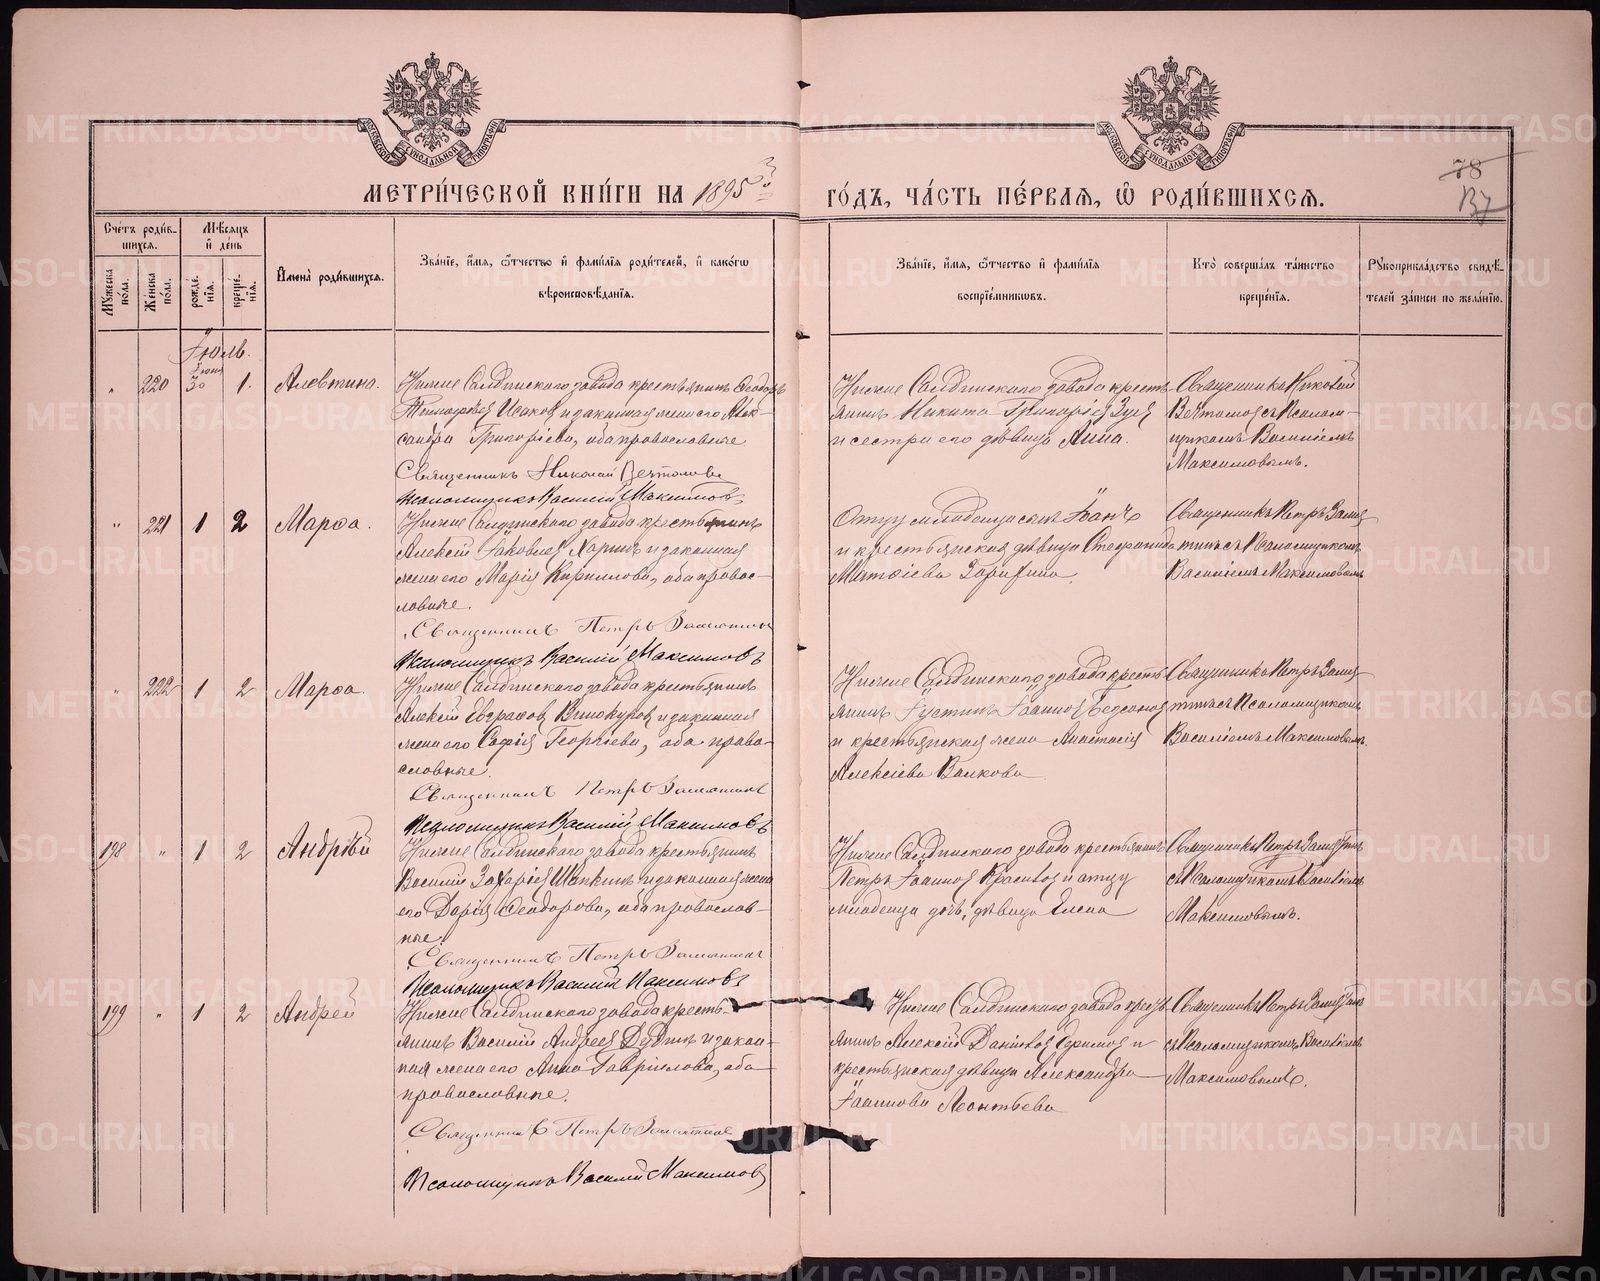 МЕТРИ́ЧЕСКОЙ КНИ́ГИ НА 1895 ГО́ДЪ, ЧА́СТЬ ПЕ́РВАЯ, Ѡ РОДИ́ВШИХСЯ.
78
137
Счетъ роди́в-
шихся.
Мѣсяцъ
и де́нь
Мужеска
по́ла.
Женска
по́ла.
рожде́-
нія.
креще́-
нія.
Имена̀ роди́вшихся.
Зва́ніе, и́мя, ѻ́тчество и фами́лія роди́телей, и како́гѡ
вѣроисповѣ́данія.
Зва́ніе, и́мя, ѻ́тчество и фами́лія
воспріе́мниковъ.
Кто̀ соверша́лъ та́инство
креще́нія.
Рукоприкла́дство свидѣ́-
телей за́писи по жела́нію.
Іюль.
" 220 Іюня 30 1. Алевтина.
Нижне Салдинскаго завода крестьянинъ Ѳеодоръ
Тимоѳеев Исаков и законная жена его Алек-
сандра Григоріева, оба православные
Священникъ Николай
Псаломщикъ Василій Максимовъ
Нижне Салдинскаго завода кресть-
янинъ Никита Григоріев Зуев
и сестра его дѣвица Анна.
Священникъ Николай
съ Псалом-
щикомъ Василіемъ
Максимовымъ.
" 221 1 2 Марѳа.
Нижне Салдинскаго завода крестьянинъ
Алексій Іаковлев и законная
жена его Марія Кириллова, оба правос-
лавные.
Священникъ Петръ Замятинъ
Псаломщикъ Василій Максимовъ
Отцу младенца сынъ Іоаннъ
и крестьянская дѣвица Стефанида
Матѳіева
Священникъ Петръ Замя-
тинъ съ Псаломщикомъ
Василіемъ Максимовымъ
" 222 1 2 Марѳа
Нижне Салдинскаго завода крестьянинъ
Алексій Евграфов Винокуров и законная
жена его Софія Георгіева, оба право-
славные.
Священникъ Петръ Замятинъ
Псаломщикъ Василій Максимовъ
Нижне Салдинскаго завода кресть-
янинъ Іустинъ Іоаннов
и крестьянская жена Анастасія
Алексіева Волкова
Священникъ Петръ Замя-
тинъ съ Псаломщикомъ
Василіемъ Максимовымъ.
198 " 1 2 Андрей
Нижне Салдинскаго завода крестьянинъ
Василій Захаріев Шапкинъ и законная жена
его Дарія Ѳеодорова, оба православ-
ные.
Священникъ Петръ Замятинъ
Псаломщикъ Василій Максимовъ
Нижне Салдинскаго завода крестьянинъ
Петръ Іоаннов Красивов и отцу
младенца дочь, дѣвица Елена
Священникъ Петръ Замятинъ
съ Псаломщикомъ Василіемъ
Максимовымъ.
199 " 1 2 Андрей
Нижне Салдинскаго завода кресть-
янинъ Василій Андреев Дудинъ и закон-
ная жена его Анна Гаврілова, оба
православные.
Священникъ Петръ Замятинъ
Псаломщикъ Василій Максимовъ
Нижне Салдинскаго завода кресть-
янинъ Алексій Даніилов и
крестьянская дѣвица Александра
Іоаннова Леонтьева
Священникъ Петръ Замятинъ
съ Псаломщикомъ Василіемъ
Максимовымъ.
METRIKI.GASO-URAL.RU